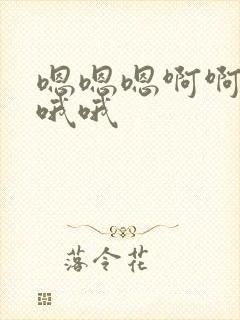 嗯嗯嗯啊啊
哦哦
落令花